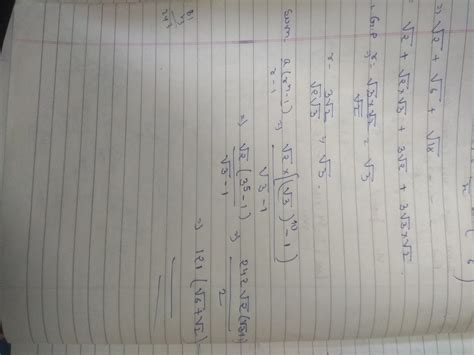 √2 + √6 + √18
√2 + √2×√3 + 3√2 + 3√3×√2
r = √3×√2 / √2 = √3
r = 3√2 / √2√3 = √3.
Sum a(rⁿ-1) / r-1 ⇒ √2×[(√3)¹⁰-1] / √3-1
⇒ √2(3⁵-1) / √3-1 ⇒ 242√2(√3+1) / 2
⇒ 121(√6+√2)
81
×3
243